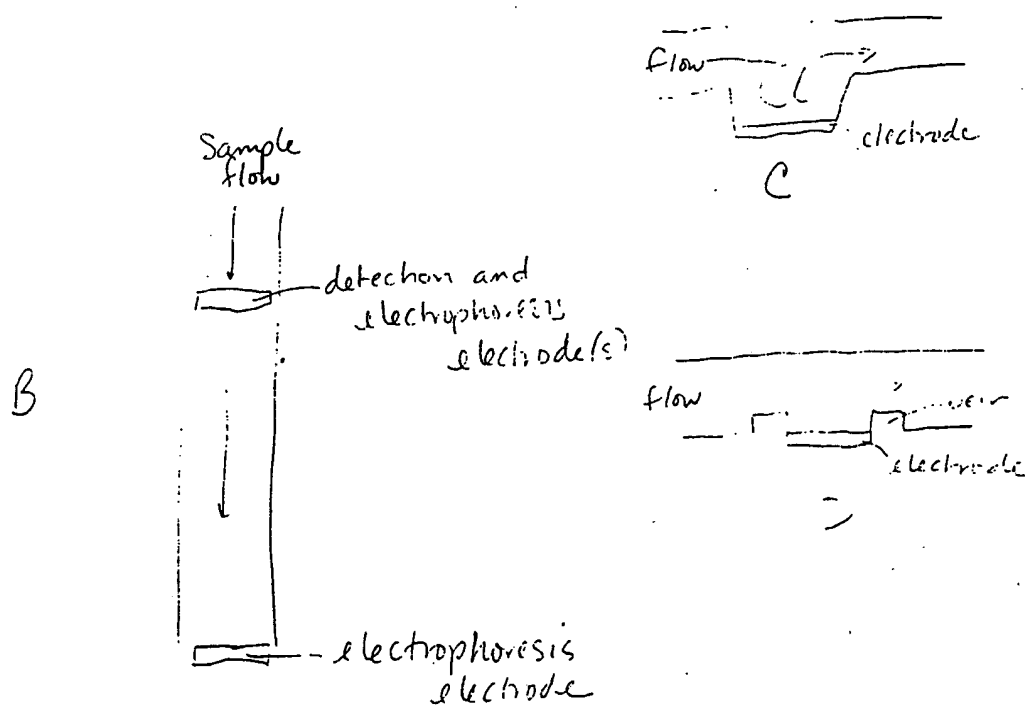 Sample
flow
detection and
electrophoresis
electrode(s)
B
electrophoresis
electrode
flow
electrode
C
flow
weir
electrode